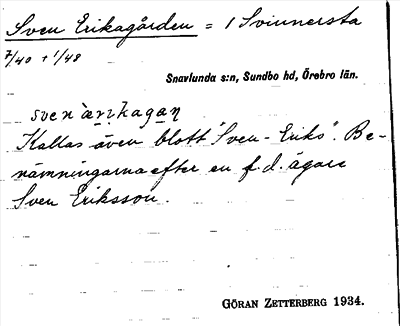 Sven Erikagården = 1 Svinnersta
7/40 + 1/48
Snavlunda s:n, Sundbo hd, Örebro län.
Kallas även blott "Sven-Eriks". Be-
nämningarna efter en f.d. ägare
Sven Eriksson.
GÖRAN ZETTERBERG 1934.